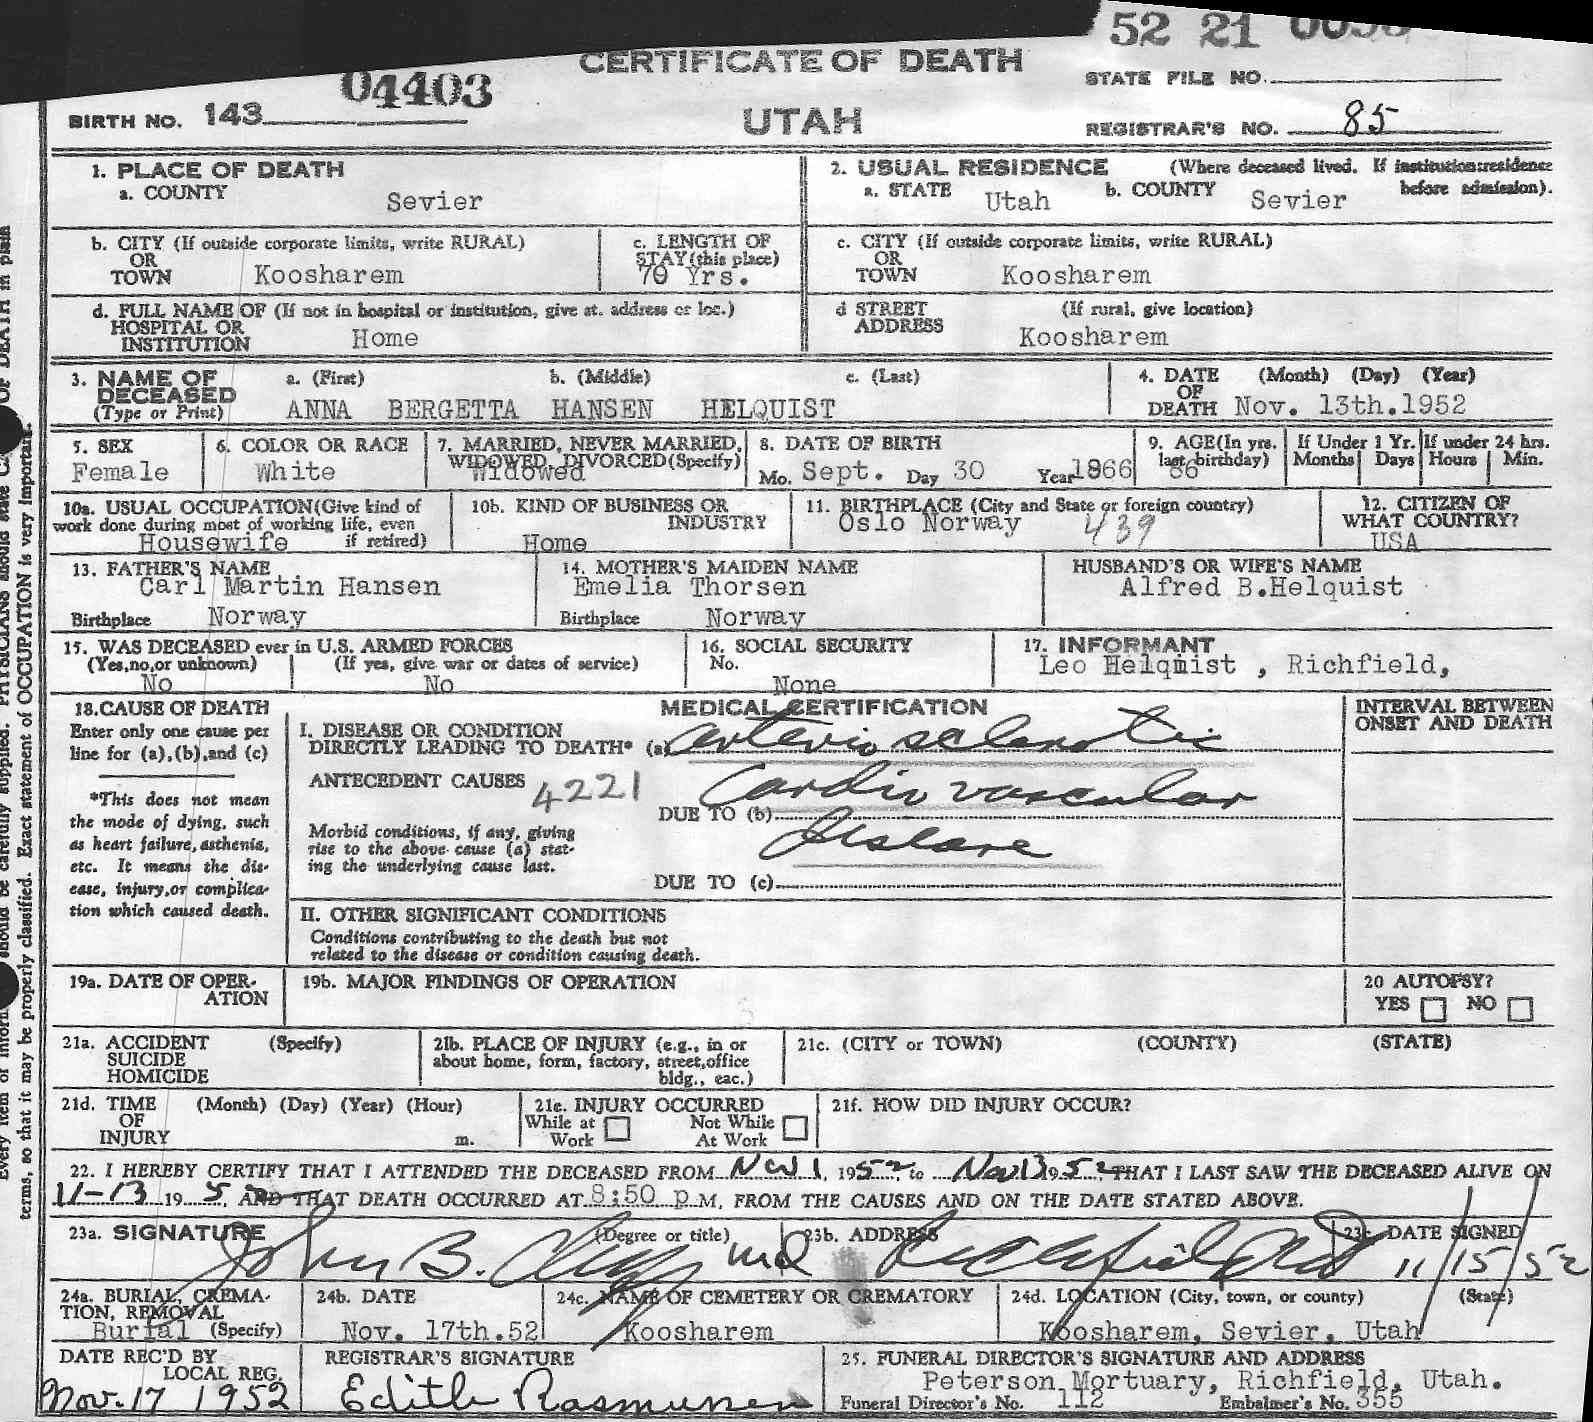 52 21
CERTIFICATE OF DEATH
STATE FILE NO.
04403
BIRTH NO. 143
UTAH
REGISTRAR'S NO. 85
1. PLACE OF DEATH
a. COUNTY Sevier
2. USUAL RESIDENCE (Where deceased lived. If institution:residence before admission).
a. STATE Utah b. COUNTY Sevier
b. CITY (If outside corporate limits, write RURAL)
OR
TOWN Koosharem
c. LENGTH OF
STAY (this place)
70 Yrs.
c. CITY (If outside corporate limits, write RURAL)
OR
TOWN Koosharem
d. FULL NAME OF (If not in hospital or institution, give at. address or loc.)
HOSPITAL OR
INSTITUTION Home
d STREET (If rural, give location)
ADDRESS
Koosharem
3. NAME OF DECEASED (Type or Print)
a. (First) b. (Middle) c. (Last)
ANNA BERGETTA HANSEN HELQUIST
4. DATE (Month) (Day) (Year)
OF
DEATH Nov. 13th.1952
5. SEX
Female
6. COLOR OR RACE
White
7. MARRIED, NEVER MARRIED,
WIDOWED, DIVORCED (Specify)
Widowed
8. DATE OF BIRTH
Mo. Sept. Day 30 Year 1866
9. AGE (In yrs.
last birthday)
86
If Under 1 Yr.
Months Days
If under 24 hrs.
Hours Min.
10a. USUAL OCCUPATION (Give kind of
work done during most of working life, even
if retired)
Housewife
10b. KIND OF BUSINESS OR
INDUSTRY
Home
11. BIRTHPLACE (City and State or foreign country)
Oslo Norway 439
12. CITIZEN OF
WHAT COUNTRY?
USA
13. FATHER'S NAME
Carl Martin Hansen
Birthplace Norway
14. MOTHER'S MAIDEN NAME
Emelia Thorsen
Birthplace Norway
HUSBAND'S OR WIFE'S NAME
Alfred B.Helquist
15. WAS DECEASED ever in U.S. ARMED FORCES
(Yes,no,or unknown) (If yes, give war or dates of service)
No No
16. SOCIAL SECURITY
No.
None
17. INFORMANT
Leo Helqmist , Richfield,
18. CAUSE OF DEATH
Enter only one cause per
line for (a),(b),and (c)
*This does not mean
the mode of dying, such
as heart failure, asthenia,
etc. It means the dis-
ease, injury,or complica-
tion which caused death.
MEDICAL CERTIFICATION
INTERVAL BETWEEN
ONSET AND DEATH
I. DISEASE OR CONDITION
DIRECTLY LEADING TO DEATH* (a) arterio sclerotic
ANTECEDENT CAUSES 4221
Cardio vascular
DUE TO (b)
Morbid conditions, if any, giving
rise to the above cause (a) stat-
ing the underlying cause last.
disease
DUE TO (c)
II. OTHER SIGNIFICANT CONDITIONS
Conditions contributing to the death but not
related to the disease or condition causing death.
19a. DATE OF OPER-
ATION
19b. MAJOR FINDINGS OF OPERATION
20 AUTOPSY?
YES NO
21a. ACCIDENT (Specify)
SUICIDE
HOMICIDE
21b. PLACE OF INJURY (e.g., in or
about home, form, factory, street,office
bldg., eac.)
21c. (CITY or TOWN) (COUNTY) (STATE)
21d. TIME (Month) (Day) (Year) (Hour)
OF
INJURY m.
21e. INJURY OCCURRED
While at Work
Not While At Work
21f. HOW DID INJURY OCCUR?
22. I HEREBY CERTIFY THAT I ATTENDED THE DECEASED FROM Nov 1, 1952 to Nov 13 1952 THAT I LAST SAW THE DECEASED ALIVE ON
11-13 195 , AND THAT DEATH OCCURRED AT 8:50 p M, FROM THE CAUSES AND ON THE DATE STATED ABOVE.
23a. SIGNATURE (Degree or title)
John B. md
23b. ADDRESS
Richfield
23c. DATE SIGNED
11/15/52
24a. BURIAL, CREMA-
TION, REMOVAL
Burial (Specify)
24b. DATE
Nov. 17th.52
24c. NAME OF CEMETERY OR CREMATORY
Koosharem
24d. LOCATION (City, town, or county) (State)
Koosharem, Sevier, Utah
DATE REC'D BY
LOCAL REG.
Nov. 17 1952
REGISTRAR'S SIGNATURE
Edith Rasmussen
25. FUNERAL DIRECTOR'S SIGNATURE AND ADDRESS
Peterson Mortuary, Richfield, Utah.
Funeral Director's No. 112 Embalmer's No. 355
terms, so that it may be properly classified. Exact statement of OCCUPATION is very important.